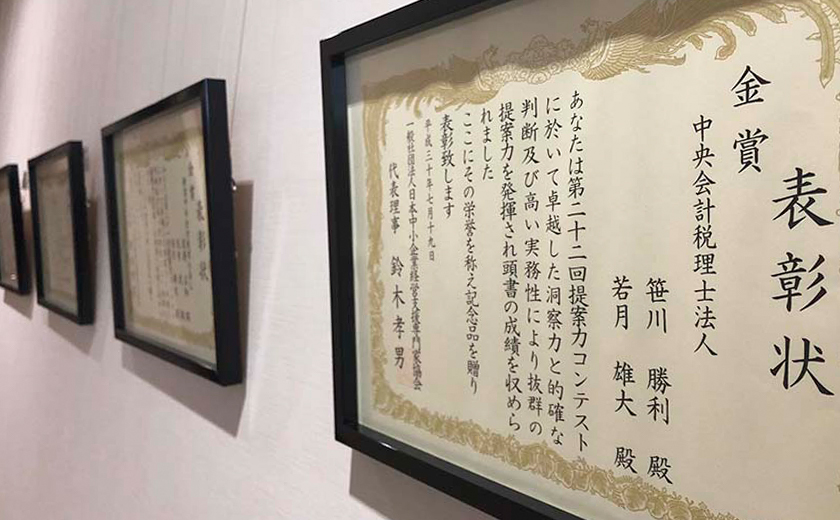 表彰状
金賞
中央会計税理士法人
笹川 勝利 殿
若月 雄大 殿
あなたは第二十二回提案力コンテスト
に於いて卓越した洞察力と的確な
判断及び高い実務性により抜群の
提案力を発揮され頭書の成績を収めら
れました
ここにその栄誉を称え記念品を贈り
表彰致します
平成三十年七月十九日
一般社団法人日本中小企業経営支援専門家協会
代表理事 鈴木孝男
表彰状
金賞